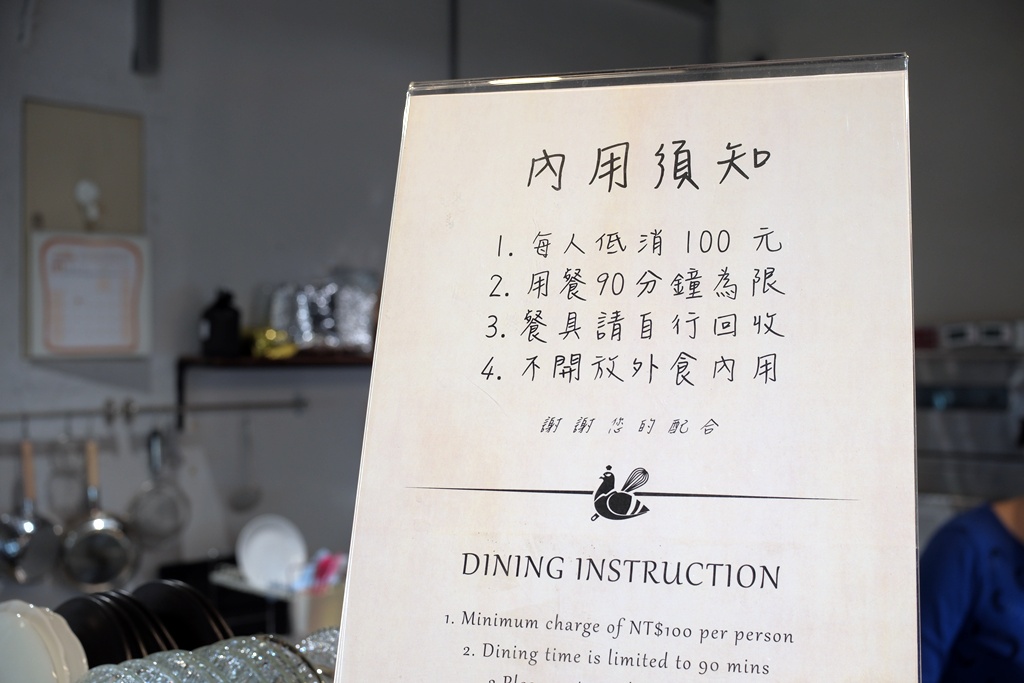 內用須知
1. 每人低消 100 元
2. 用餐90分鐘為限
3. 餐具請自行回收
4. 不開放外食內用
謝謝您的配合
DINING INSTRUCTION
1. Minimum charge of NT$100 per person
2. Dining time is limited to 90 mins